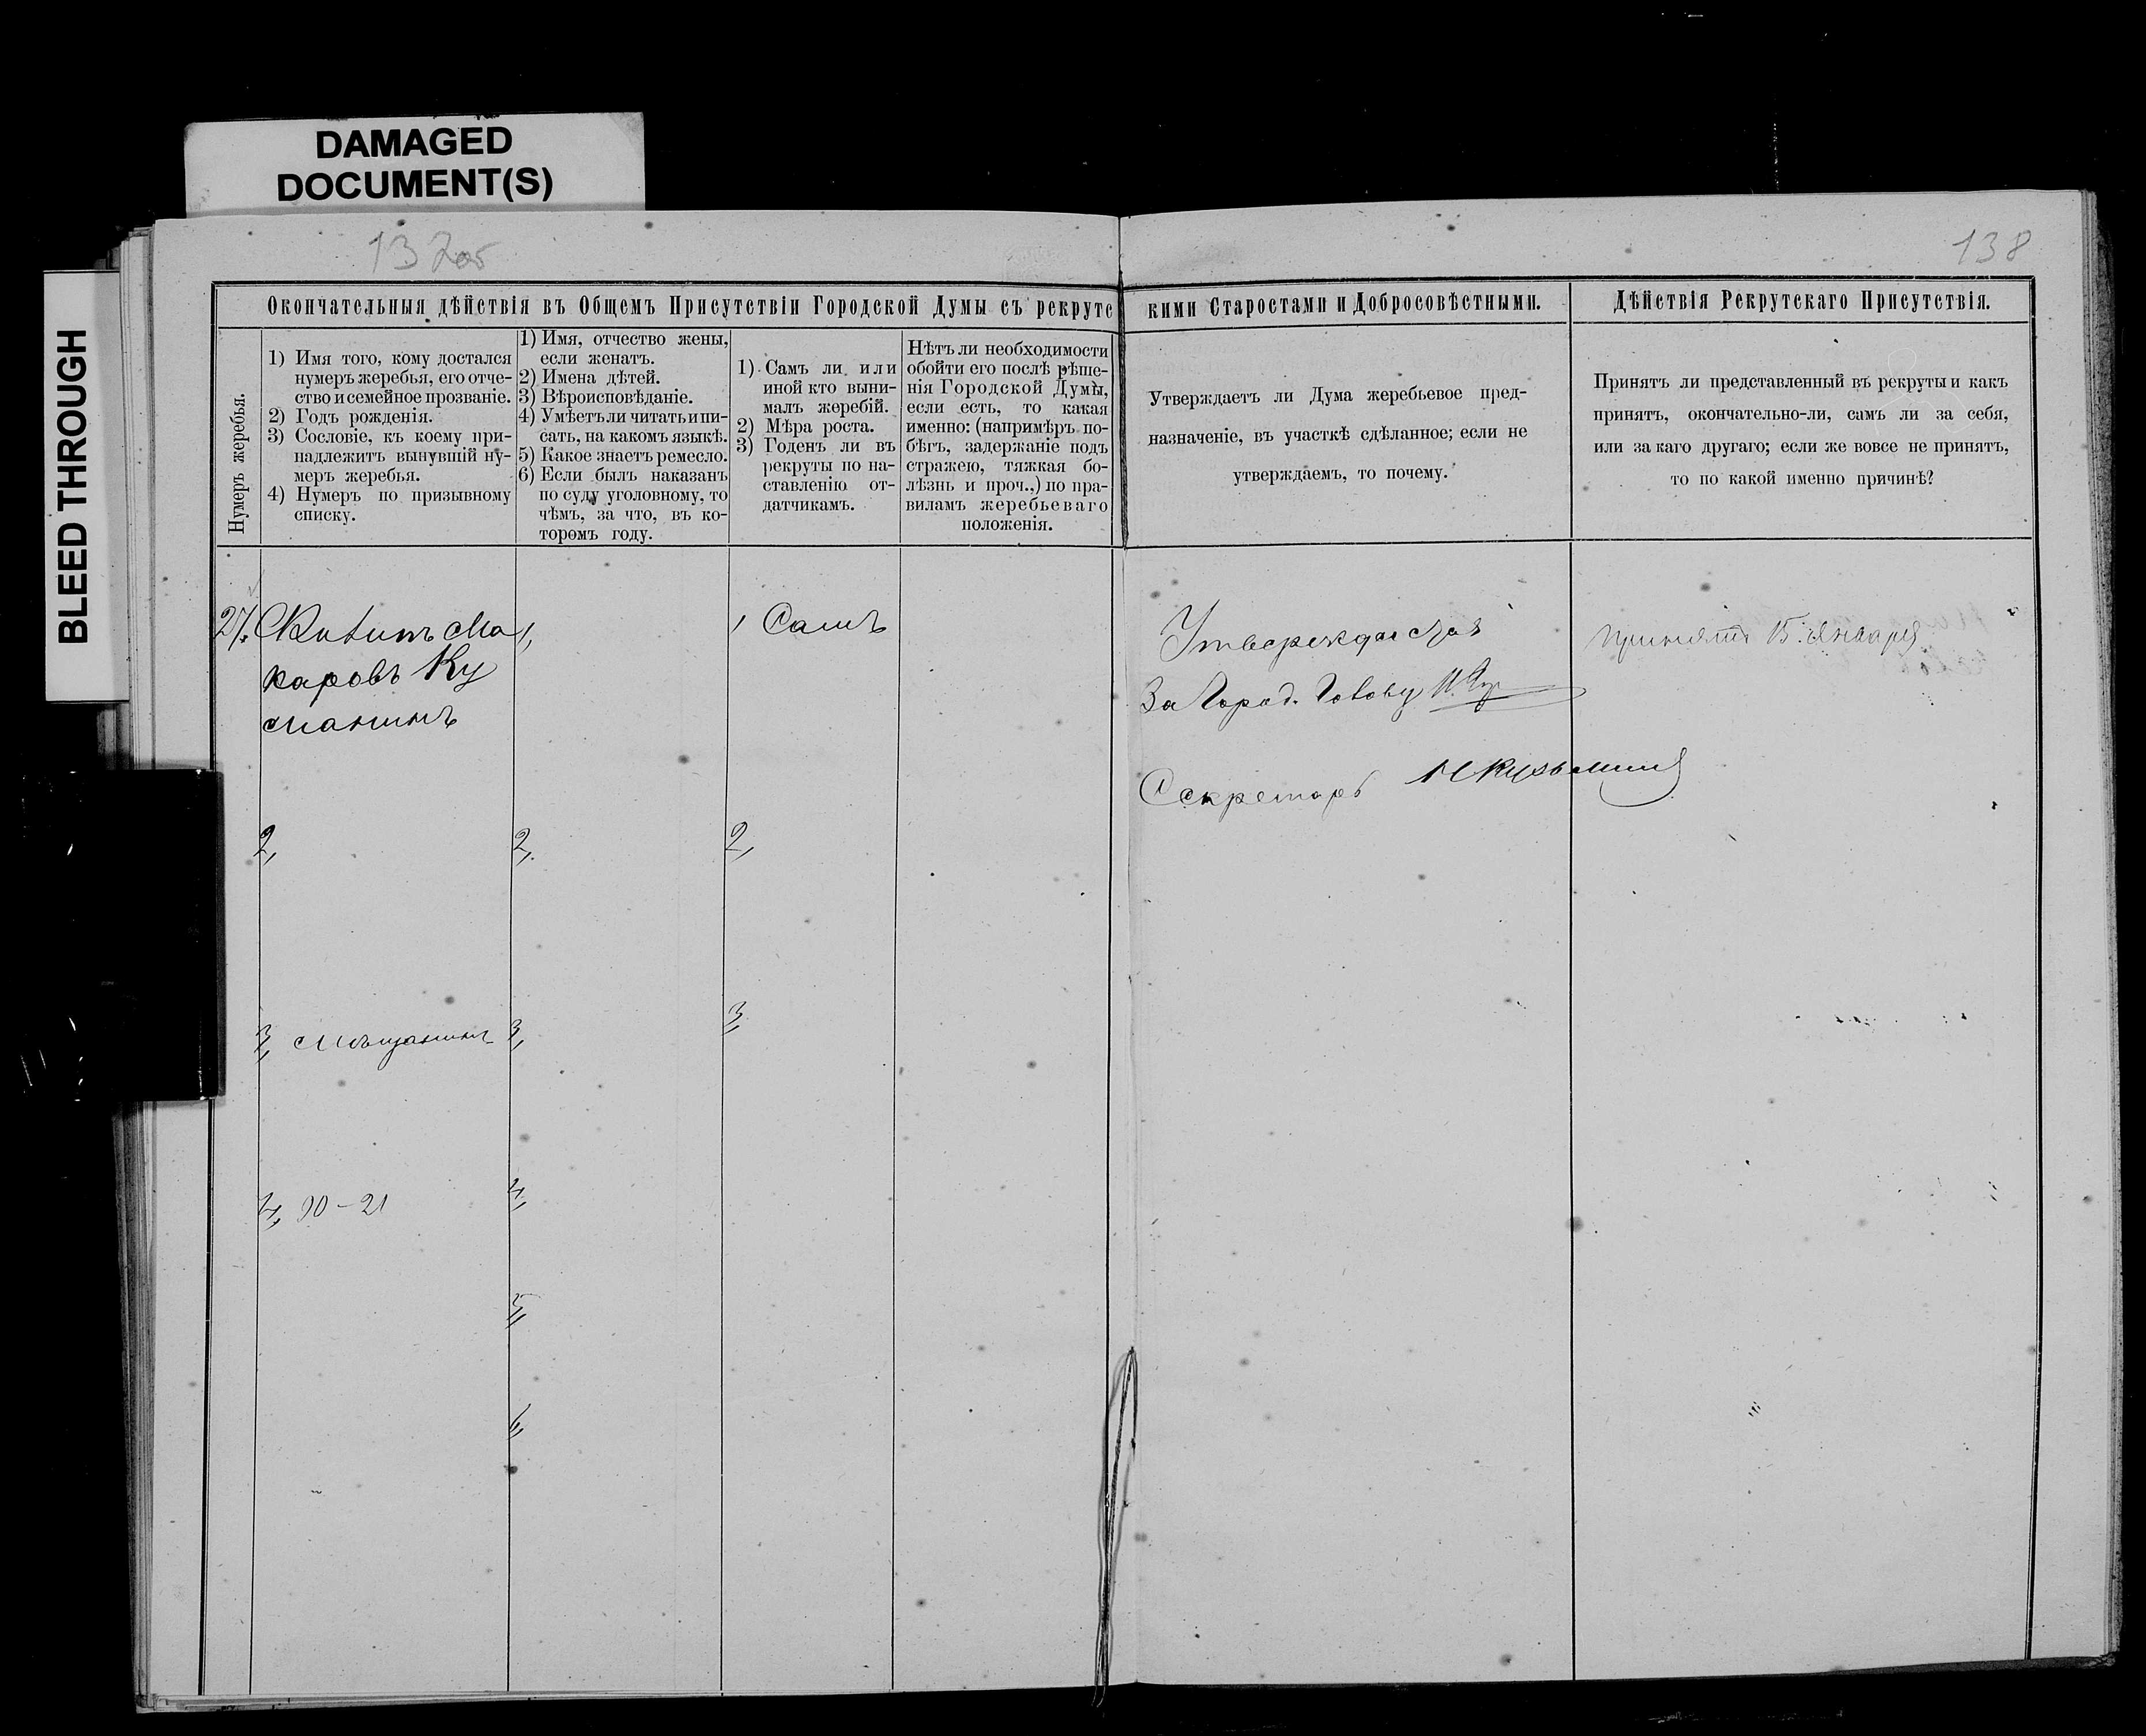 DAMAGED
DOCUMENT(S)
BLEED THROUGH
137об
138
Окончательныя дѣйствія въ Общемъ Присутствіи Городской Думы съ рекрутс
кими Старостами и Добросовѣстными.
Дѣйствія Рекрутскаго Присутствія.
Нумеръ жеребья.
1) Имя того, кому достался
нумеръ жеребья, его отче-
ство и семейное прозваніе.
2) Годъ рожденія.
3) Сословіе, къ коему при-
надлежитъ вынувшій ну-
меръ жеребья.
4) Нумеръ по призывному
списку.
1) Имя, отчество жены,
если женатъ.
2) Имена дѣтей.
3) Вѣроисповѣданіе.
4) Умѣетъ ли читать и пи-
сать, на какомъ языкѣ.
5) Какое знаетъ ремесло.
6) Если былъ наказанъ
по суду уголовному, то
чѣмъ, за что, въ ко-
торомъ году.
1) Самъ ли или
иной кто выни-
малъ жеребій.
2) Мѣра роста.
3) Годенъ ли въ
рекруты по на-
ставленію от-
датчикамъ.
Нѣтъ ли необходимости
обойти его послѣ рѣше-
нія Городской Думы,
если есть, то какая
именно: (напримѣръ по-
бѣгъ, задержаніе подъ
стражею, тяжкая бо-
лѣзнь и проч.,) по пра-
виламъ жеребьеваго
положенія.
Утверждаетъ ли Дума жеребьевое пред-
назначеніе, въ участкѣ сдѣланное; если не
утверждаемъ, то почему.
Принятъ ли представленный въ рекруты и какъ
принятъ, окончательно-ли, самъ ли за себя,
или за каго другаго; если же вовсе не принятъ,
то по какой именно причинѣ?
27. Ма
каровъ Ку
манинъ
2,
3, Мѣщанинъ
4, 90-21
1,
2,
3,
4,
5,
6,
1 Самъ
2,
3,
Утверждается
За Город. Голову
Секретарь Н Кузьмин
Принятъ 15. Января